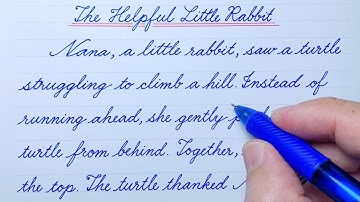 The Helpful Little Rabbit
Nana, a little rabbit, saw a turtle
struggling to climb a hill. Instead of
running ahead, she gently
turtle from behind. Together,
the top. The turtle thanked